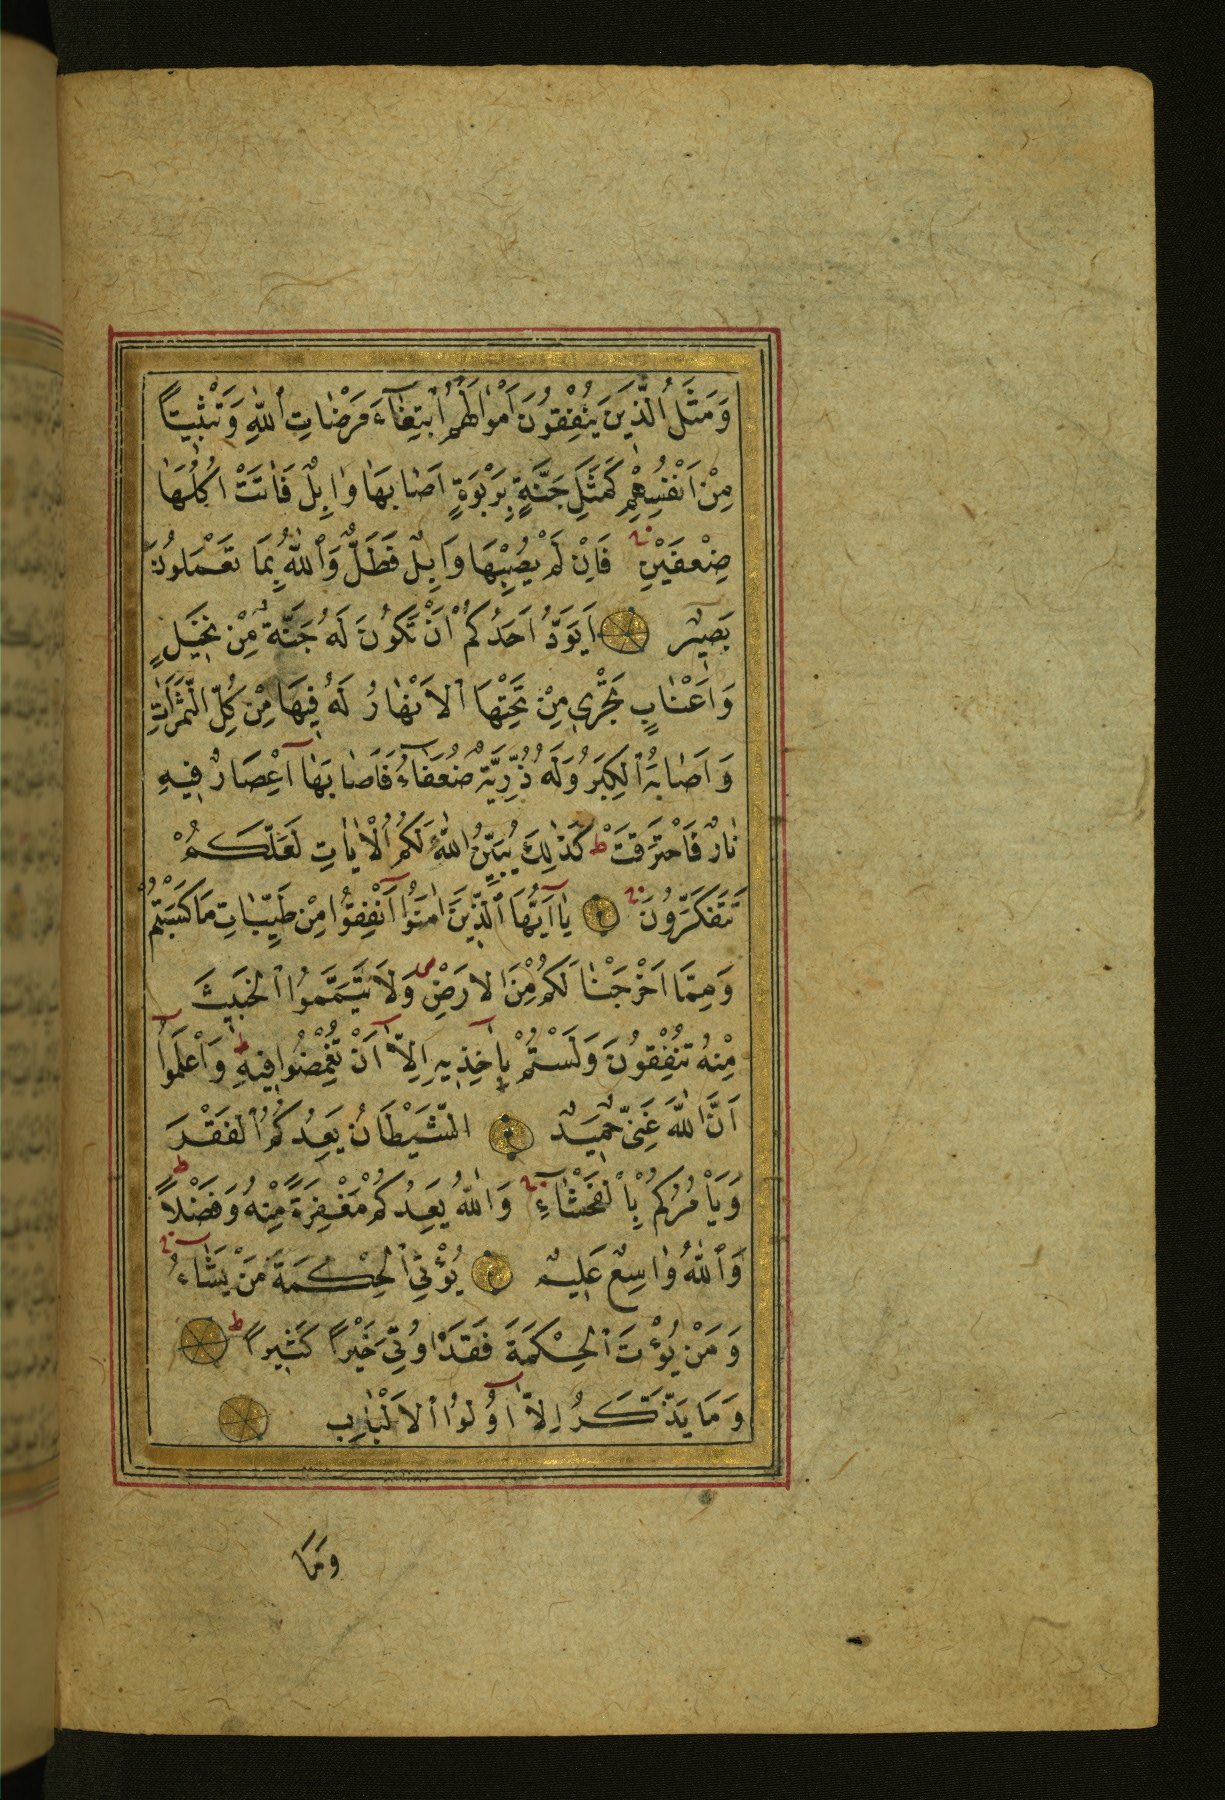 وَمَثَلُ الَّذِينَ يُنْفِقُونَ اَمْوَالَهُمُ ابْتِغَاءَ مَرْضَاتِ اللّٰهِ وَتَثْبِيتًا
مِنْ اَنْفُسِهِمْ كَمَثَلِ جَنَّةٍ بِرَبْوَةٍ اَصَابَهَا وَابِلٌ فَاٰتَتْ اُكُلَهَا
ضِعْفَيْنِ فَاِنْ لَمْ يُصِبْهَا وَابِلٌ فَطَلٌّ وَاللّٰهُ بِمَا تَعْمَلُونَ
بَصِيرٌ اَيَوَدُّ اَحَدُكُمْ اَنْ تَكُونَ لَهُ جَنَّةٌ مِنْ نَخِيلٍ
وَاَعْنَابٍ تَجْرِي مِنْ تَحْتِهَا الْاَنْهَارُ لَهُ فِيهَا مِنْ كُلِّ الثَّمَرَاتِ
وَاَصَابَهُ الْكِبَرُ وَلَهُ ذُرِّيَّةٌ ضُعَفَاءُ فَاَصَابَهَا اِعْصَارٌ فِيهِ
نَارٌ فَاحْتَرَقَتْ ط كَذٰلِكَ يُبَيِّنُ اللّٰهُ لَكُمُ الْاٰيَاتِ لَعَلَّكُمْ
تَتَفَكَّرُونَ يَا اَيُّهَا الَّذِينَ اٰمَنُوا اَنْفِقُوا مِنْ طَيِّبَاتِ مَا كَسَبْتُمْ
وَمِمَّا اَخْرَجْنَا لَكُمْ مِنَ الْاَرْضِ وَلَا تَيَمَّمُوا الْخَبِيثَ
مِنْهُ تُنْفِقُونَ وَلَسْتُمْ بِاٰخِذِيهِ اِلَّا اَنْ تُغْمِضُوا فِيهِ ط وَاعْلَمُوا
اَنَّ اللّٰهَ غَنِيٌّ حَمِيدٌ الشَّيْطَانُ يَعِدُكُمُ الْفَقْرَ
وَيَاْمُرُكُمْ بِالْفَحْشَاءِ وَاللّٰهُ يَعِدُكُمْ مَغْفِرَةً مِنْهُ وَفَضْلًا ط
وَاللّٰهُ وَاسِعٌ عَلِيمٌ يُؤْتِي الْحِكْمَةَ مَنْ يَشَاءُ
وَمَنْ يُؤْتَ الْحِكْمَةَ فَقَدْ اُوتِيَ خَيْرًا كَثِيرًا ط
وَمَا يَذَّكَّرُ اِلَّا اُولُوا الْاَلْبَابِ
وَمَا